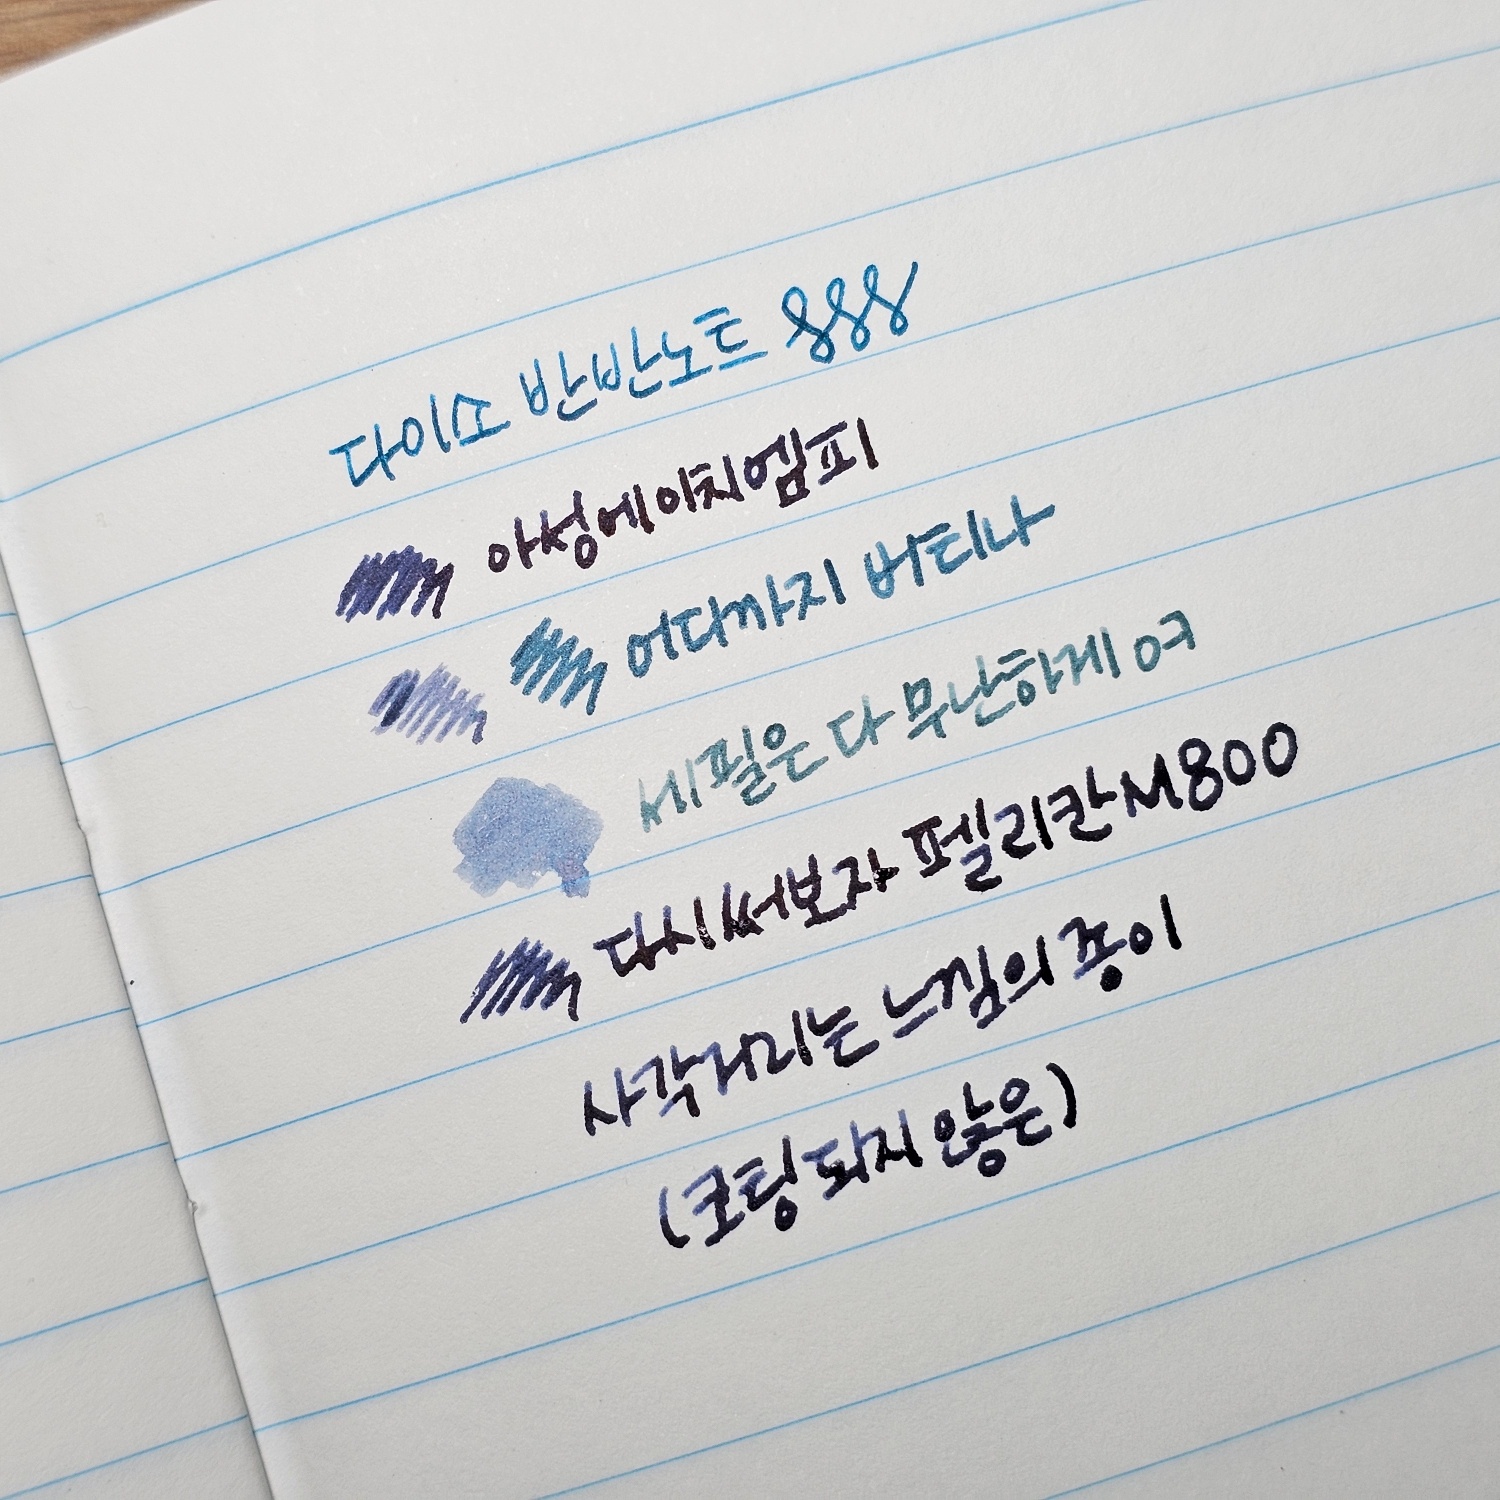 다이소 반반노트 888
아성에이치엠피
어디까지 버티나
세필은 다 무난하게 여
다시써보자 펠리칸M800
사각거리는 느낌의 종이
(코팅되지 않은)